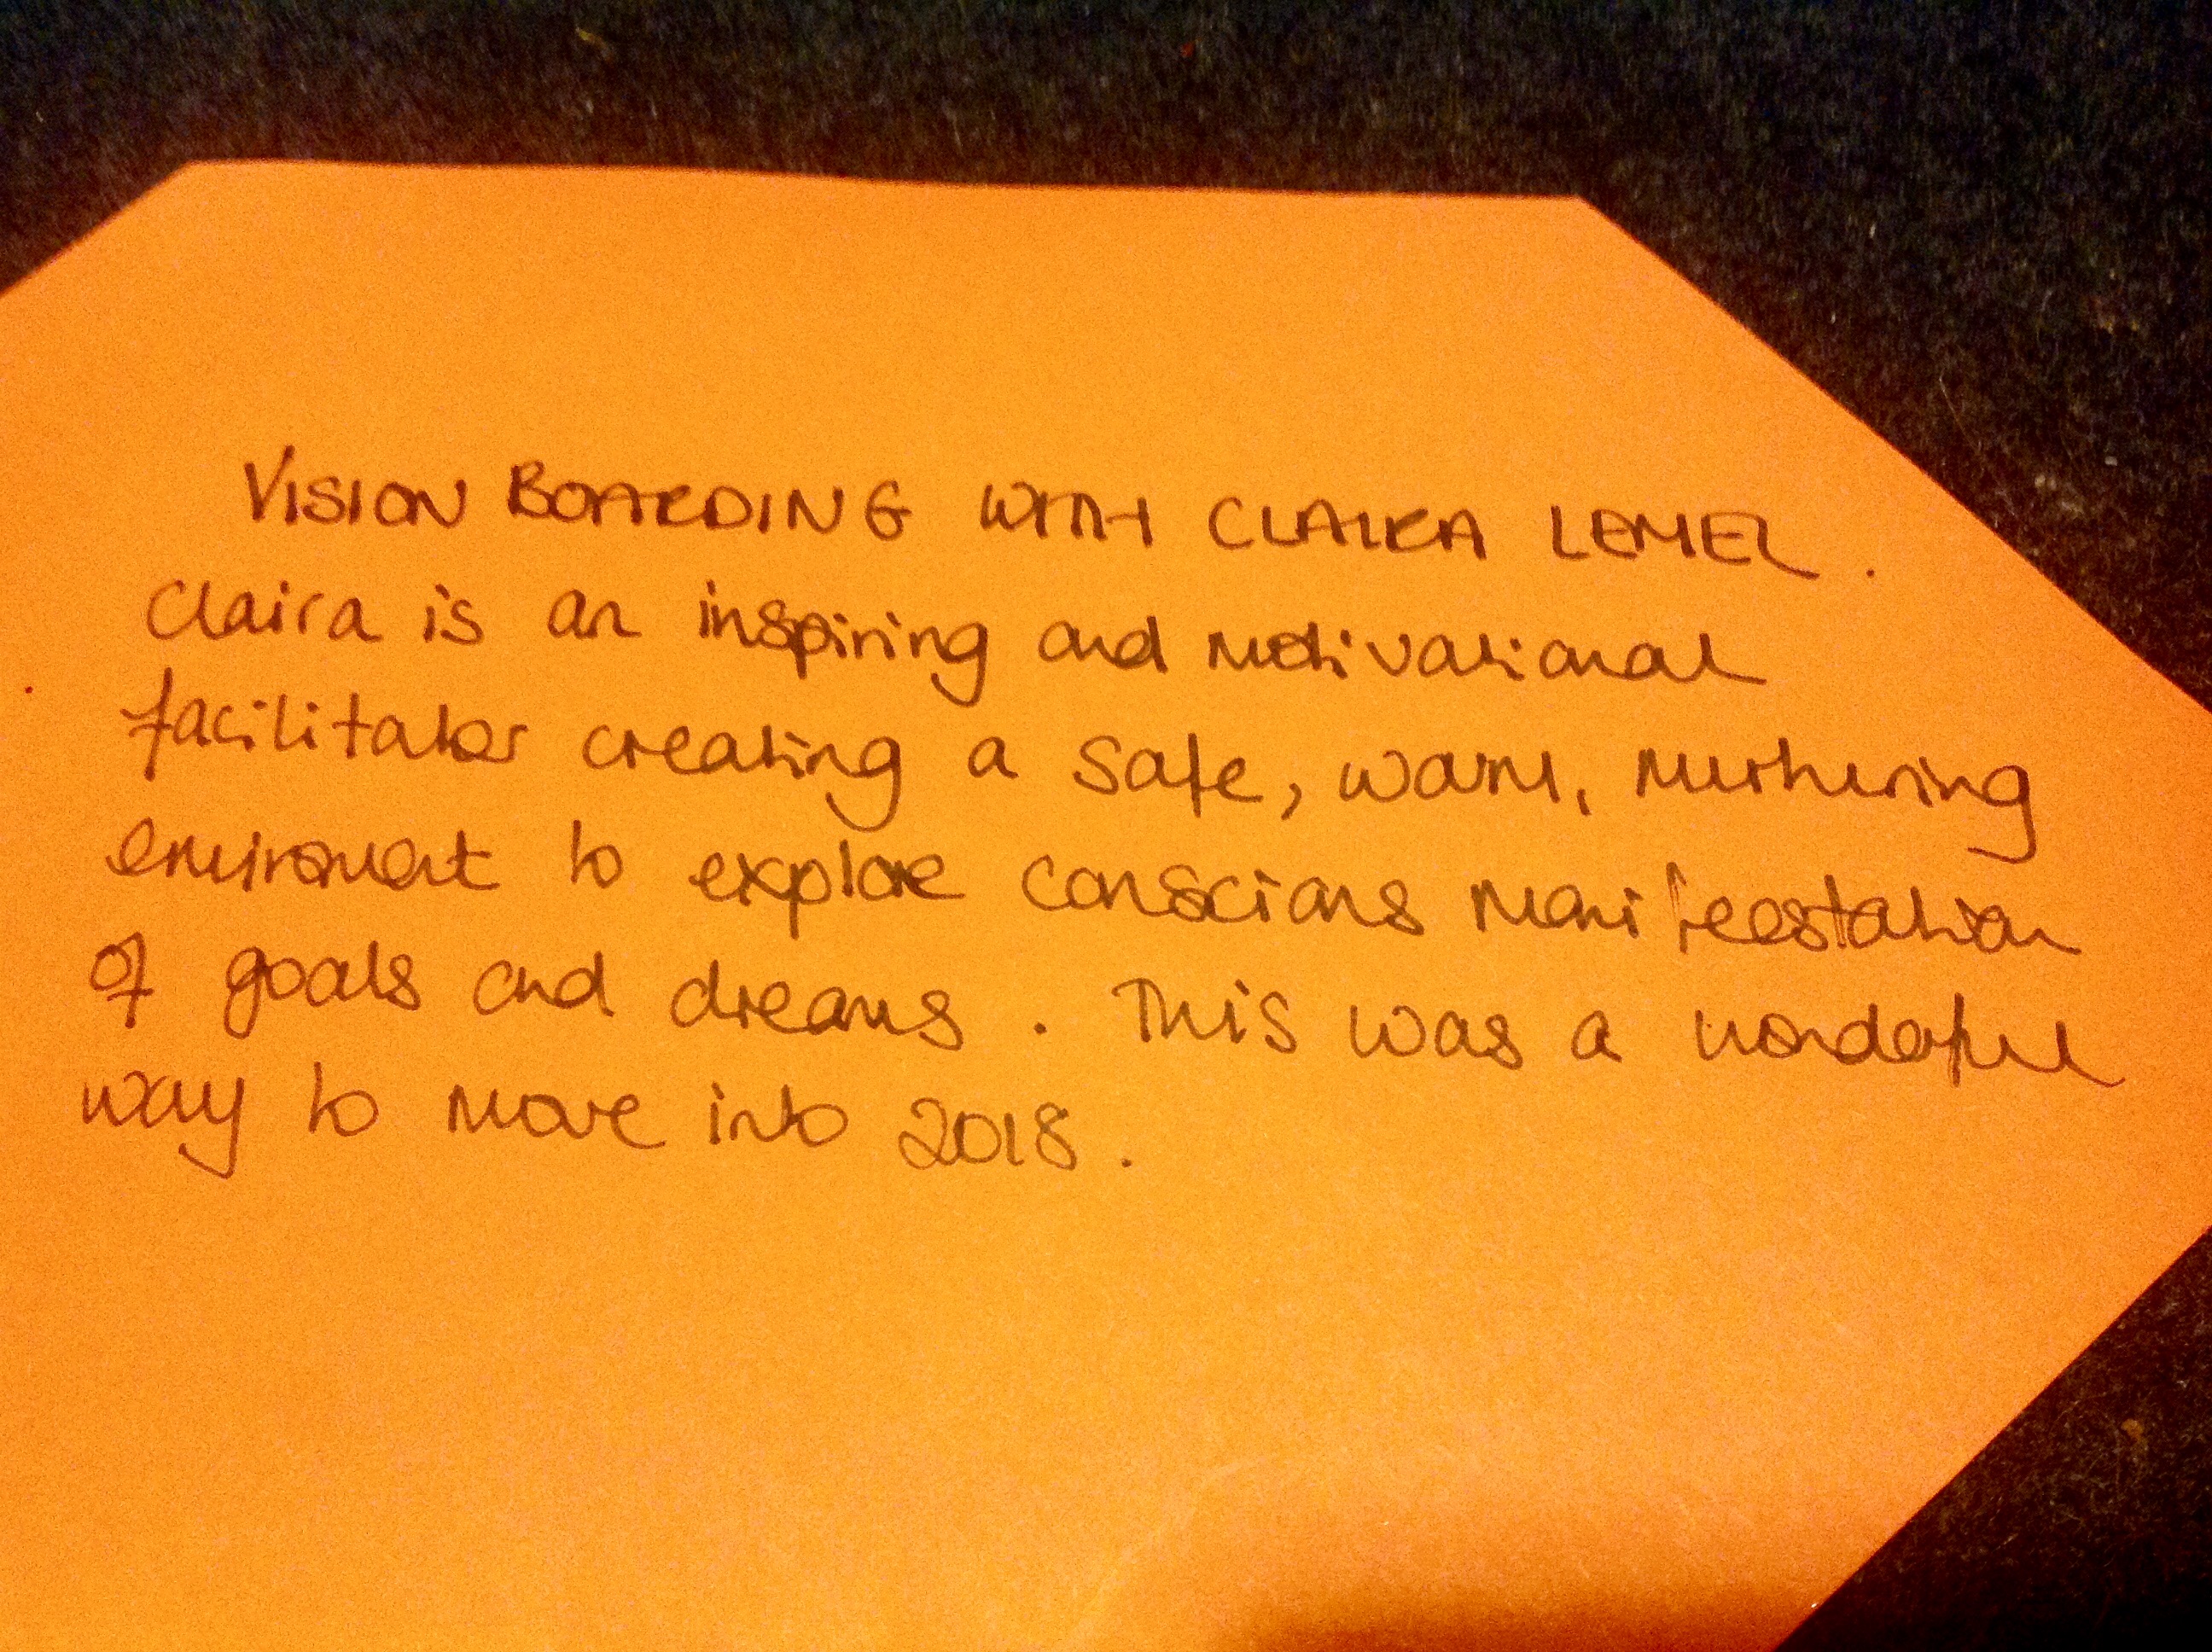 VISION BOARDING WITH CLAIRA LEMEL.
Claira is an inspiring and motivational
facilitator creating a safe, warm, nurturing
enviroment to explore conscious manifeestation
of goals and dreams. This was a wonderful
way to move into 2018.